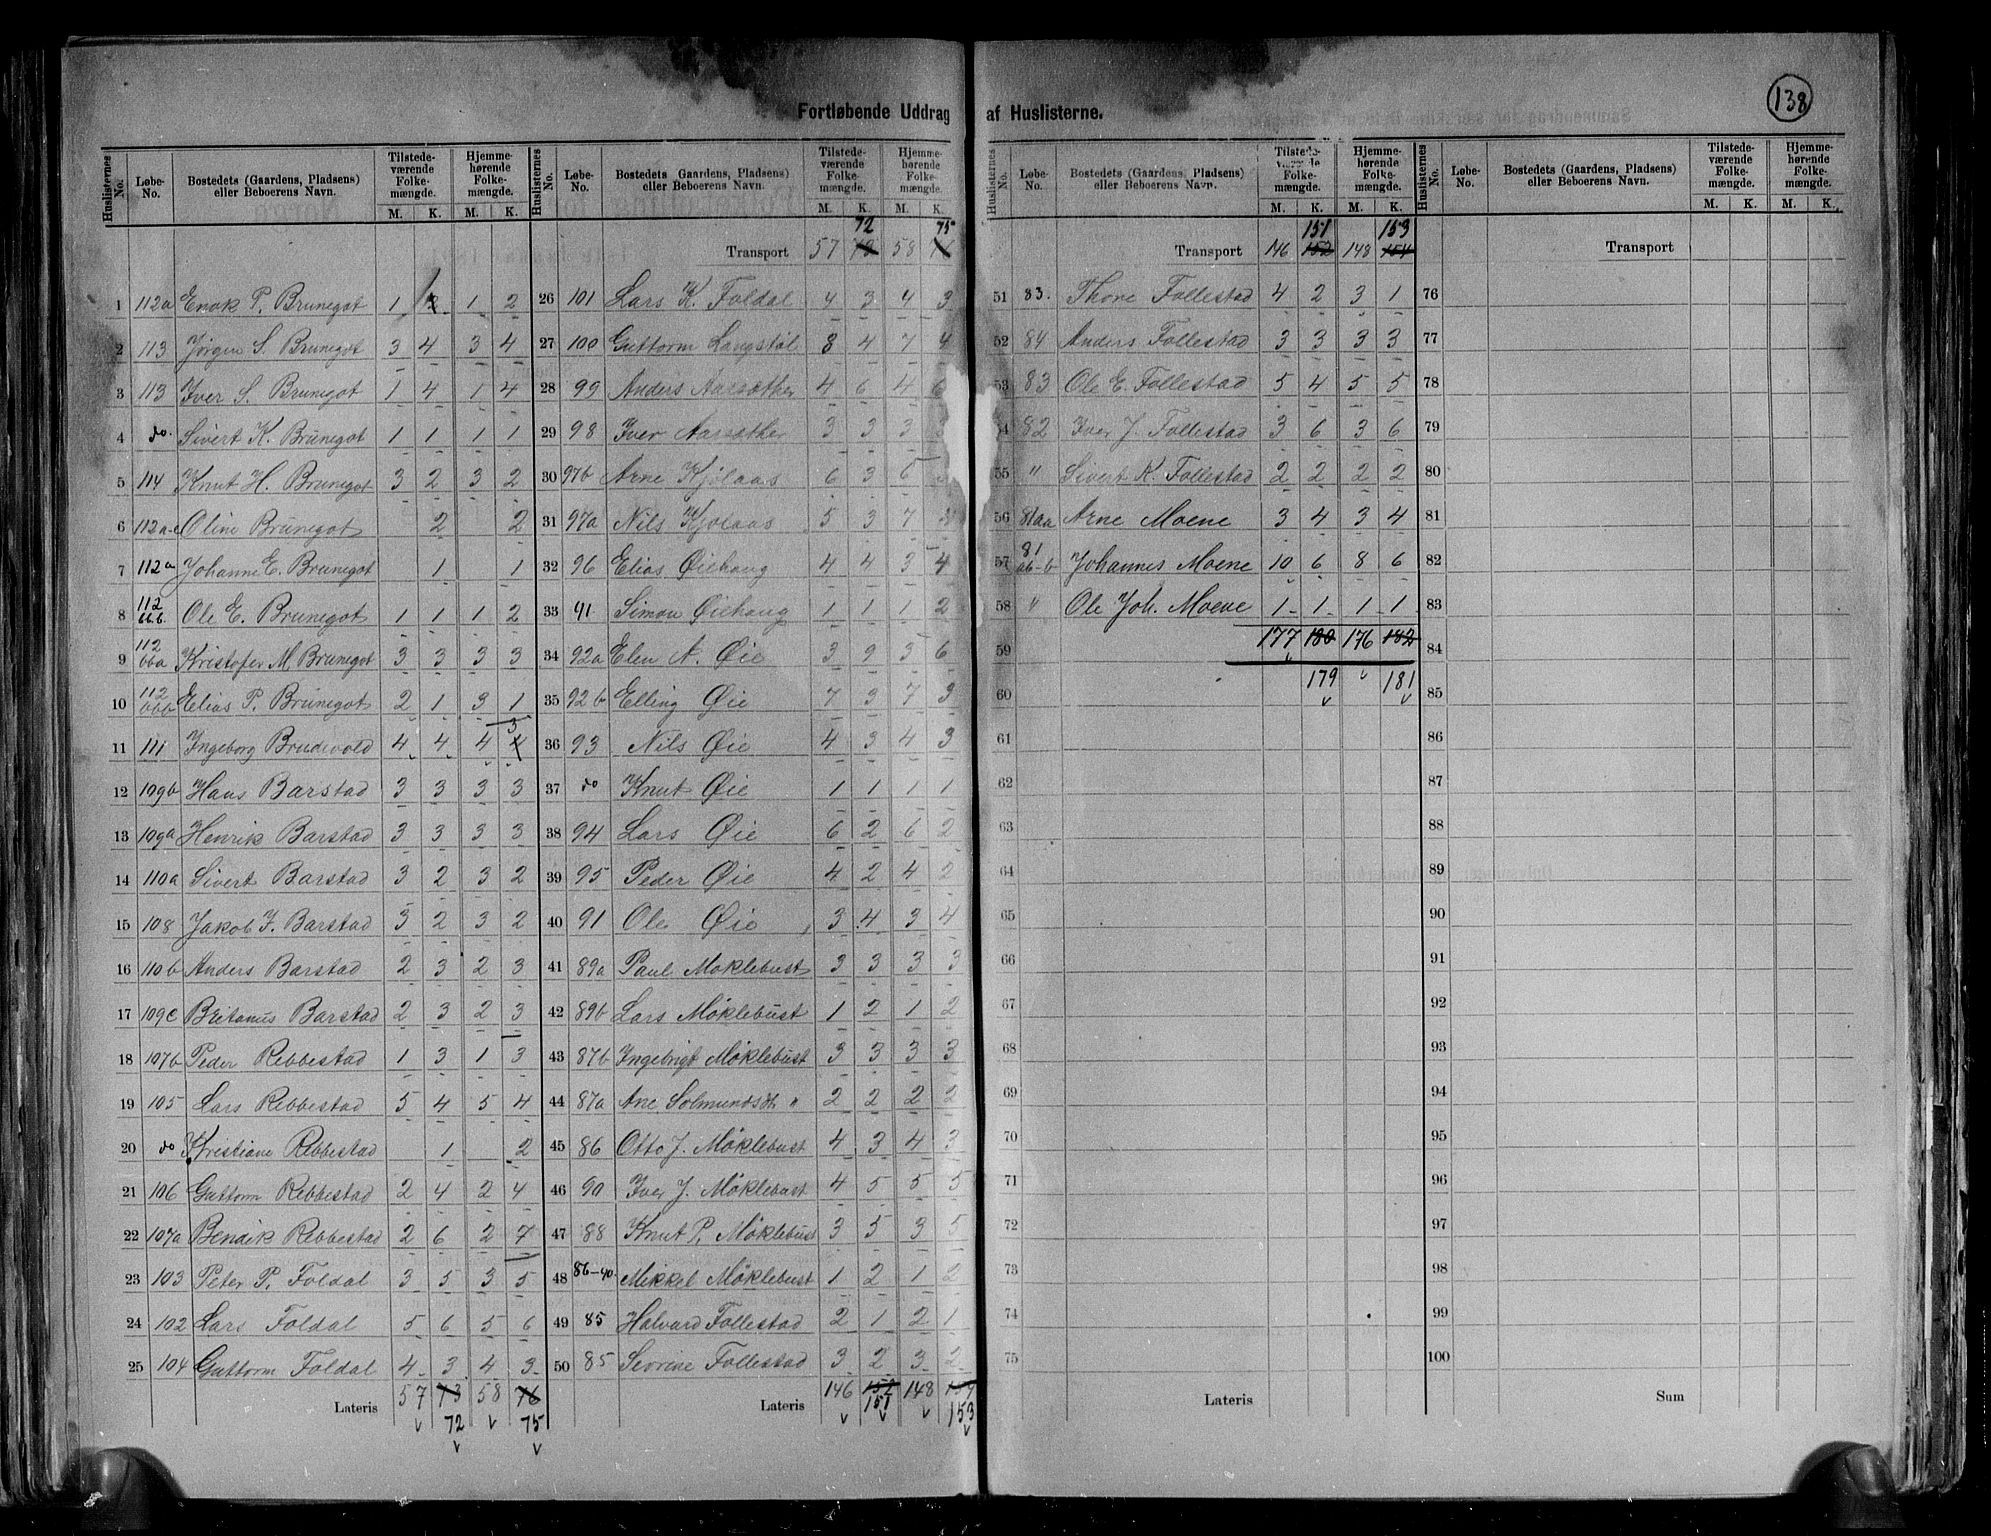 138
Fortløbende Uddrag af Huslisterne.
Huslisternes No. Løbe-No. Bostedets (Gaardens, Pladsens) eller Beboerens Navn. Tilstedeværende Folkemængde. M. K. Hjemmehørende Folkemængde. M. K.
1 112a Enok P. Brunegot 1 1 2
2 113 Jørgen S. Brunegot 3 4 3 4
3 113 Iver S. Brunegot 1 4 1 4
4 do. Sivert K. Brunegot 1 1 1 1
5 114 Knut H. Brunegot 3 2 3 2
6 Oline Brunegot 2 2
7 112a Johanne E. Brunegot 1 1
8 112 Ole E. Brunegot 1 1 1 2
9 112 bba Kristofer M. Brunegot 3 3 3 3
10 112 bbb Elias P. Brunegot 2 1 3 1
11 111 Ingeborg Brudevold 4 4 4 4 3
12 109b Hans Barstad 3 3 3 3
13 109a Henrik Barstad 3 3 3 3
14 110a Sivert Barstad 3 2 3 2
15 108 Jakob J. Barstad 3 2 3 2
16 110b Anders Barstad 2 3 2 3
17 109c Barstad 2 3 2 3
18 107b Peder Rebbestad 1 3 1 3
19 105 Lars Rebbestad 5 4 5 4
20 do Kristiane Rebbestad 1 2
21 106 Guttorm Rebbestad 2 4 2 4
22 107a Bendik Rebbestad 2 6 2 7
23 103 Peter P. Foldal 3 5 3 5
24 102 Lars Foldal 5 6 5 6
25 104 Guttorm Foldal 4 3 4 3
Lateris 57 73 58 76
72 75
Huslisternes No. Løbe-No. Bostedets Gaardens, Pladsens) eller Beboerens Navn. Tilstedeværende Folkemængde. M. K. Hjemmehørende Folkemængde. M. K.
72 75
Transport 57 73 58 76
26 101 Lars K. Foldal 4 3 4 3
27 100 Guttorm Langstøl 8 4 7 4
28 99 Anders Aarsæther 4 6 4 6
29 98 Iver Aarsæther 3 3 3
30 97b Arne Kjølaas 6 3
31 97a Nils Kjølaas 5 3 7
32 96 Elias Øiehaug 4 4 3 4
33 41 Simon Øiehaug 1 1 1 2
34 92a Elen A. Øie 3 9 3 6
35 92b Elling Øie 7 3 7 3
36 93 Nils Øie 4 3 4 3
37 do Knut Øie 1 1 1 1
38 94 Lars Øie 6 2 6 2
39 95 Peder Øie 4 2 4 2
40 91 Ole Øie 3 4 3 4
41 89a Paul Møklebust 3 3 3 3
42 89b Lars Møklebust 1 2 1 2
43 87b Ingebrigt Møklebust 3 3 3 3
44 87a Ane Solmundsdt. " 2 2 2 2
45 86 Otto J. Møklebust 4 3 4 3
46 90 Iver J. Møklebust 4 5 5 5
47 88 Knut P. Møklebust 3 5 3 5
48 86-40 Mikkel Møklebust 1 2 1 2
49 85 Halvard Follestad 2 1 2 1
50 85 Sevrine Follestad 3 2 3 2
Lateris 146 152 148 154
151 153
Huslisternes No. Løbe-No. Bostedets (Gaardens, Pladsens) eller Beboerens Navn. Tilstedeværende Folkemængde. M. K. Hjemmehørende Folkemængde. M. K.
151 153
Transport 146 152 148 154
51 83. Thore Follestad 4 2 3 1
52 84 Anders Follestad 3 3 3 3
53 83 Ole E. Follestad 5 4 5 5
54 82 Iver J. Follestad 3 6 3 6
55 " Sivert K. Follestad 2 2 2 2
56 81aa Arne Moene 3 4 3 4
57 81 ab-b Johannes Moene 10 6 8 6
58 " Ole Joh. Moene 1 1 1 1
59 177 180 176 182
60 179 181
61
62
63
64
65
66
67
68
69
70
71
72
73
74
75
Lateris
Huslisternes No. Løbe-No. Bostedets (Gaardens, Pladsens) eller Beboerens Navn. Tilstedeværende Folkemængde. M. K. Hjemmehørende Folkemængde. M. K.
Transport
76
77
78
79
80
81
82
83
84
85
86
87
88
89
90
91
92
93
94
95
96
97
98
99
100
Sum